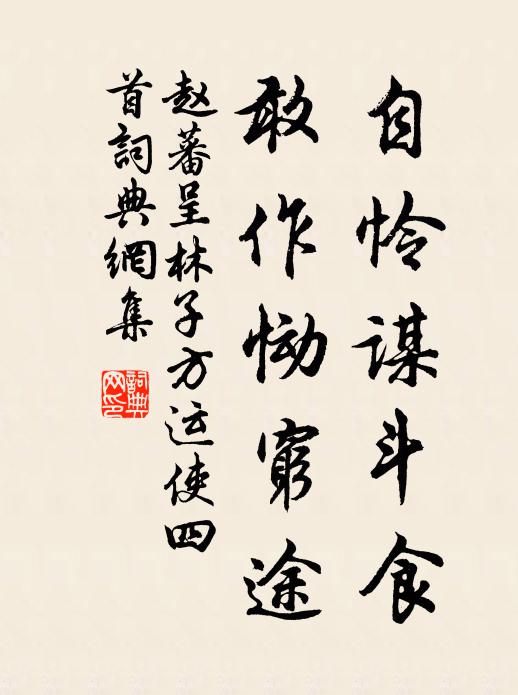 自怜谋斗食
敢作恸穷途
赵蕃呈林子方运使四
首词典网集
詞典
网印